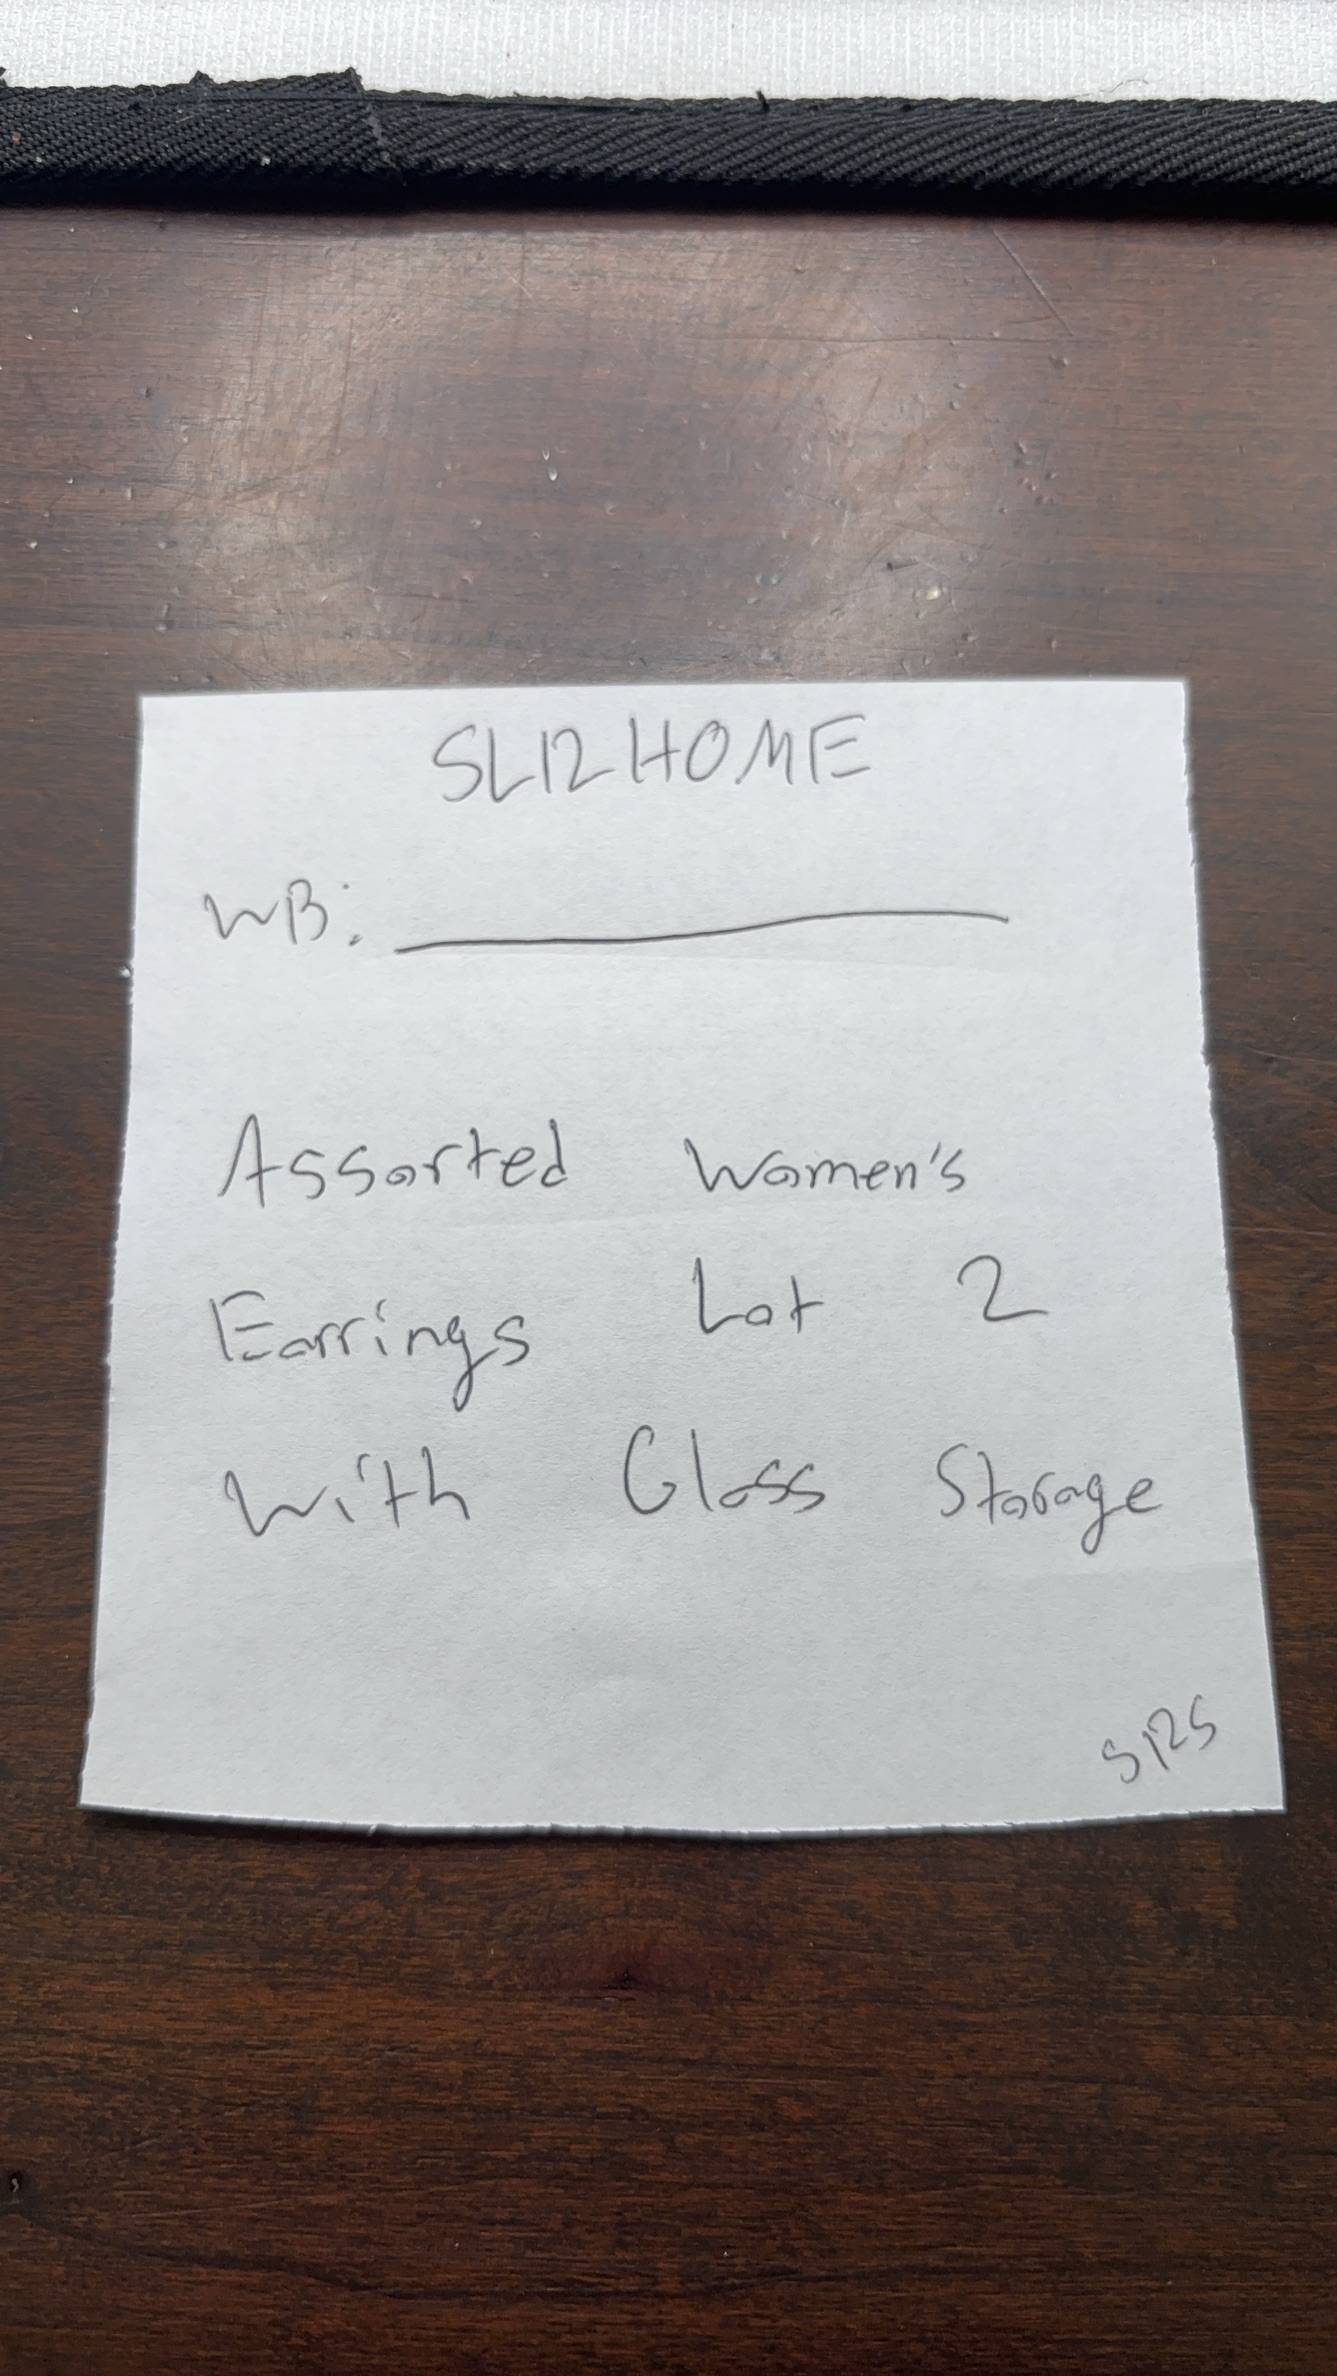 SL12HOME
WB: ________
Assorted Women's
Earrings Lot 2
With Glass Storage
S125